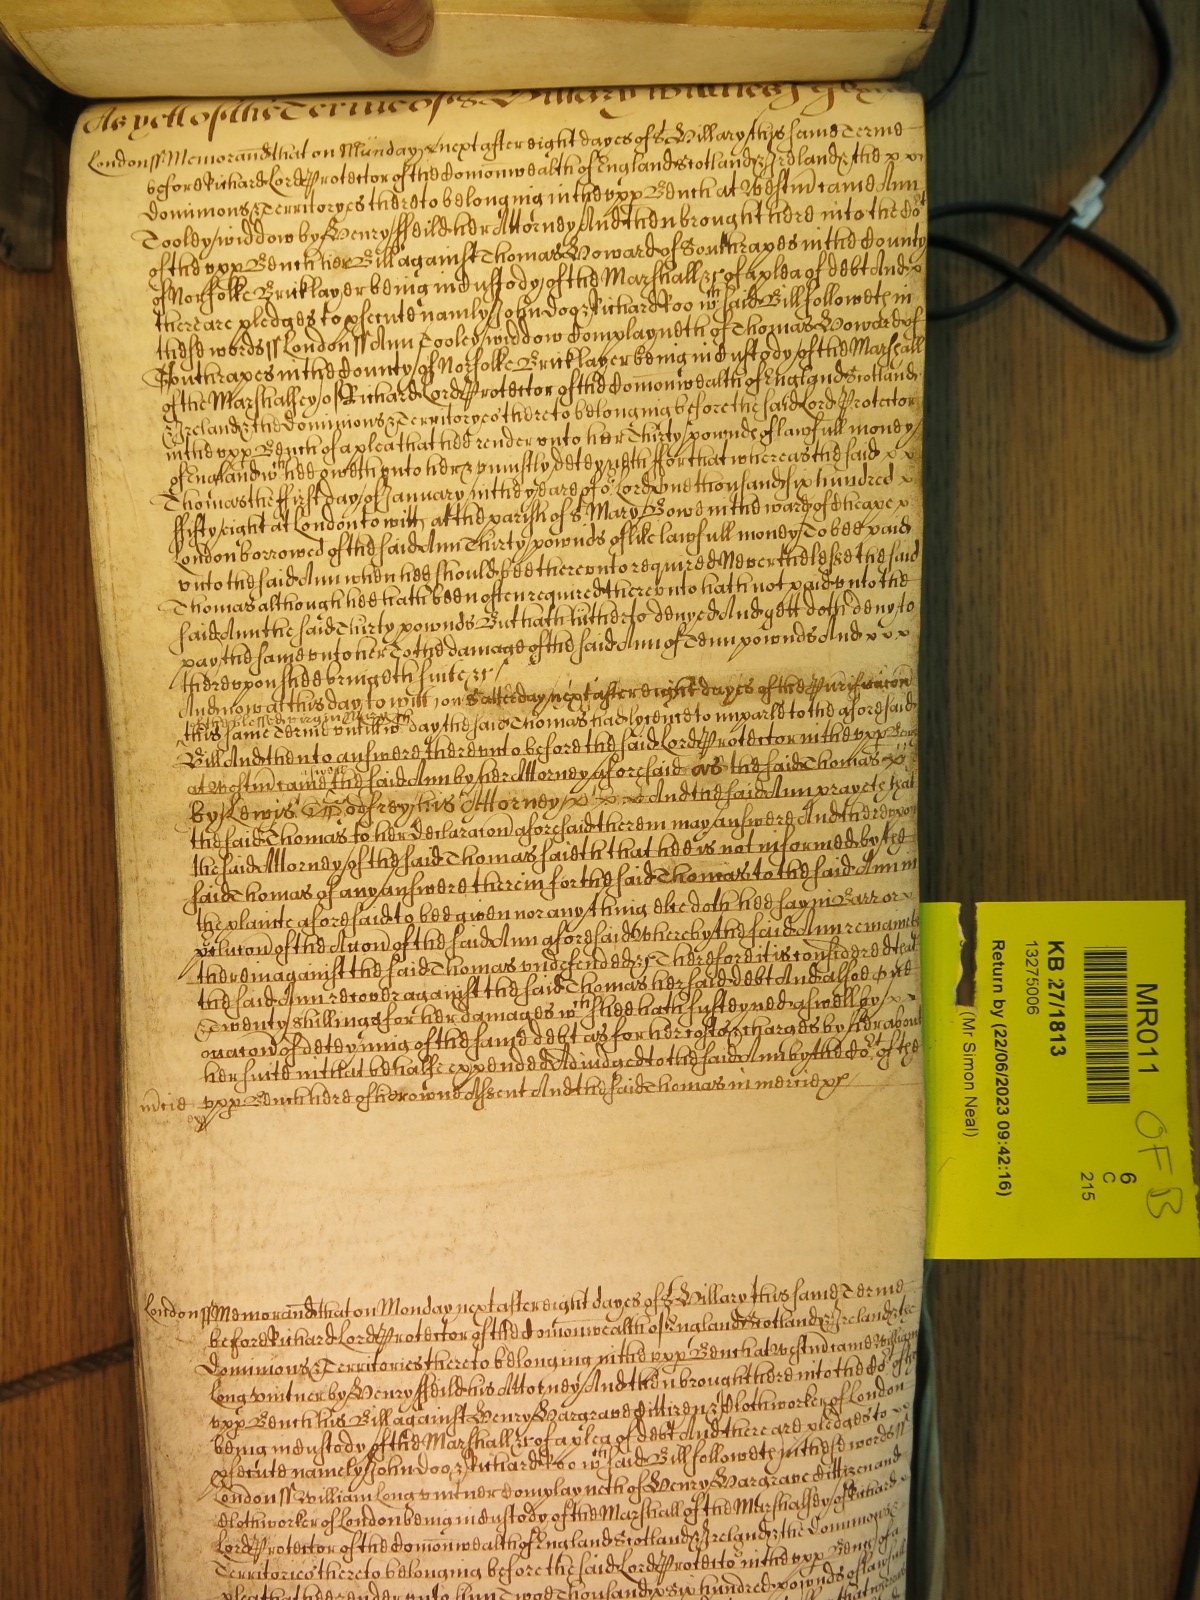 As yett of the Terme of St Hillary Witnes
London ss Memorand that on Munday next after eight dayes of St Hillary this same Terme
before Richard Lord Protector of the Comonwealth of England Scotland & Ireland & the x x
Dominions & Territoryes thereto belonging in the vpp Bench at Westm came Ann
Tooley widdow by Henry ffeild her Attorney And then brought here into the Cot
of the vpp Bench her Bill against Thomas Howard of Southrapes in the County
of Norfolke Bricklayer being in Custody of the Marshall &c of a plea of debt And x
there are pledges to psecute namely John Doo & Richard Roo wch said Bill followeth in
these words ss London ss Ann Tooley widdow Complayneth of Thomas Howard of
Southrapes in the County of Norfolke Bricklayer being in Custody of the Marshall
of the Marshalsey of Richard Lord Protector of the Comonwealth of England Scotland
& Ireland & the Dominions & Territoryes thereto belonging before the said Lord Protector
in the vpp Bench of a plea that hee render vnto her Thirty pownds of lawfull money
of England wch hee oweth vnto her & vniustly deteyneth ffor that whereas the said x x
Thomas the ffirst day of January in the yeare of or Lord One thousand six hundred x
ffifty eight at London to witt at the parish of St Mary Bowe in the ward of Cheape x
London borrowed of the said Ann Thirty pownds of like lawfull money To bee paid
vnto the said Ann when hee should bee therevnto required Neverthelesse the said
Thomas although hee hath been often required therevnto hath not paid vnto the
said Ann the said Thirty pownds But hath hitherto denyed And yett doth deny to
pay the same vnto her To the damage of the said Ann of Tenn pownds And x x x
therevpon shee bringeth suite &c
And now at this day to witt on Satterday next after eight dayes of the Purificacon
of the blessed virgin Mary
this same Terme vntill wch day the said Thomas had lycence to imparle to the aforesaid
Bill And then to answere therevnto before the said Lord Protector in the vpp Bench
at Westm came the said Ann by her Attorney aforesaid as the said Thomas x
by Lewis Godfrey his Attorney x x x And the said Ann prayeth that
the said Thomas to her Declaracon aforesaid therein may answere And therevpon
the said Attorney of the said Thomas saith that hee is not informed by the
said Thomas of any answere therein for the said Thomas to the said Ann in
the plainte aforesaid to bee given nor any thing else doth hee say in Barr or x
pclucon of the Accon of the said Ann aforesaid Whereby the said Ann remaineth
therein against the said Thomas vndefended &c Therefore it is considered that
the said Ann recover against the said Thomas her said debt And alsoe
Twenty shillings for her damages wch shee hath susteyned aswell by x x
occacon of deteyning of the same debt as for her costs & charges by her about
her suite in that behalfe expended Adiudged to the said Ann by the Cot of the
vpp Bench here of her owne Assent And the said Thomas in mercie &c
mcie
London ss Memorand that on Monday next after eight dayes of St Hillary this same Terme
before Richard Lord Protector of the Comonwealth of England Scotland & Ireland & the
Dominions & Territories thereto belonging in the vpp Bench at Westm came William
Long vintner by Henry ffeild his Attorney And then brought here into the Cot of the
vpp Bench his Bill against Henry Hargrave Cittizen & Clothworker of London
being in Custody of the Marshall &c of a plea of debt And there are pledges to x x
psecute namely John Doo & Richard Roo wch said Bill followeth in these words ss
London ss William Long vintner Complayneth of Henry Hargrave Cittizen and
Clothworker of London being in Custody of the Marshall of the Marshalsey of Richard
Lord Protector of the Comonwealth of England Scotland & Ireland & the Dominions &
Territories thereto belonging before the said Lord Protector in the vpp Bench of a
plea that hee render vnto him Two Thousand & six hundred pownds of lawfull
MR011
6
C
215
OFB
KB 27/1813
13275006
Return by (22/06/2023 09:42:16)
(Mr Simon Neal)